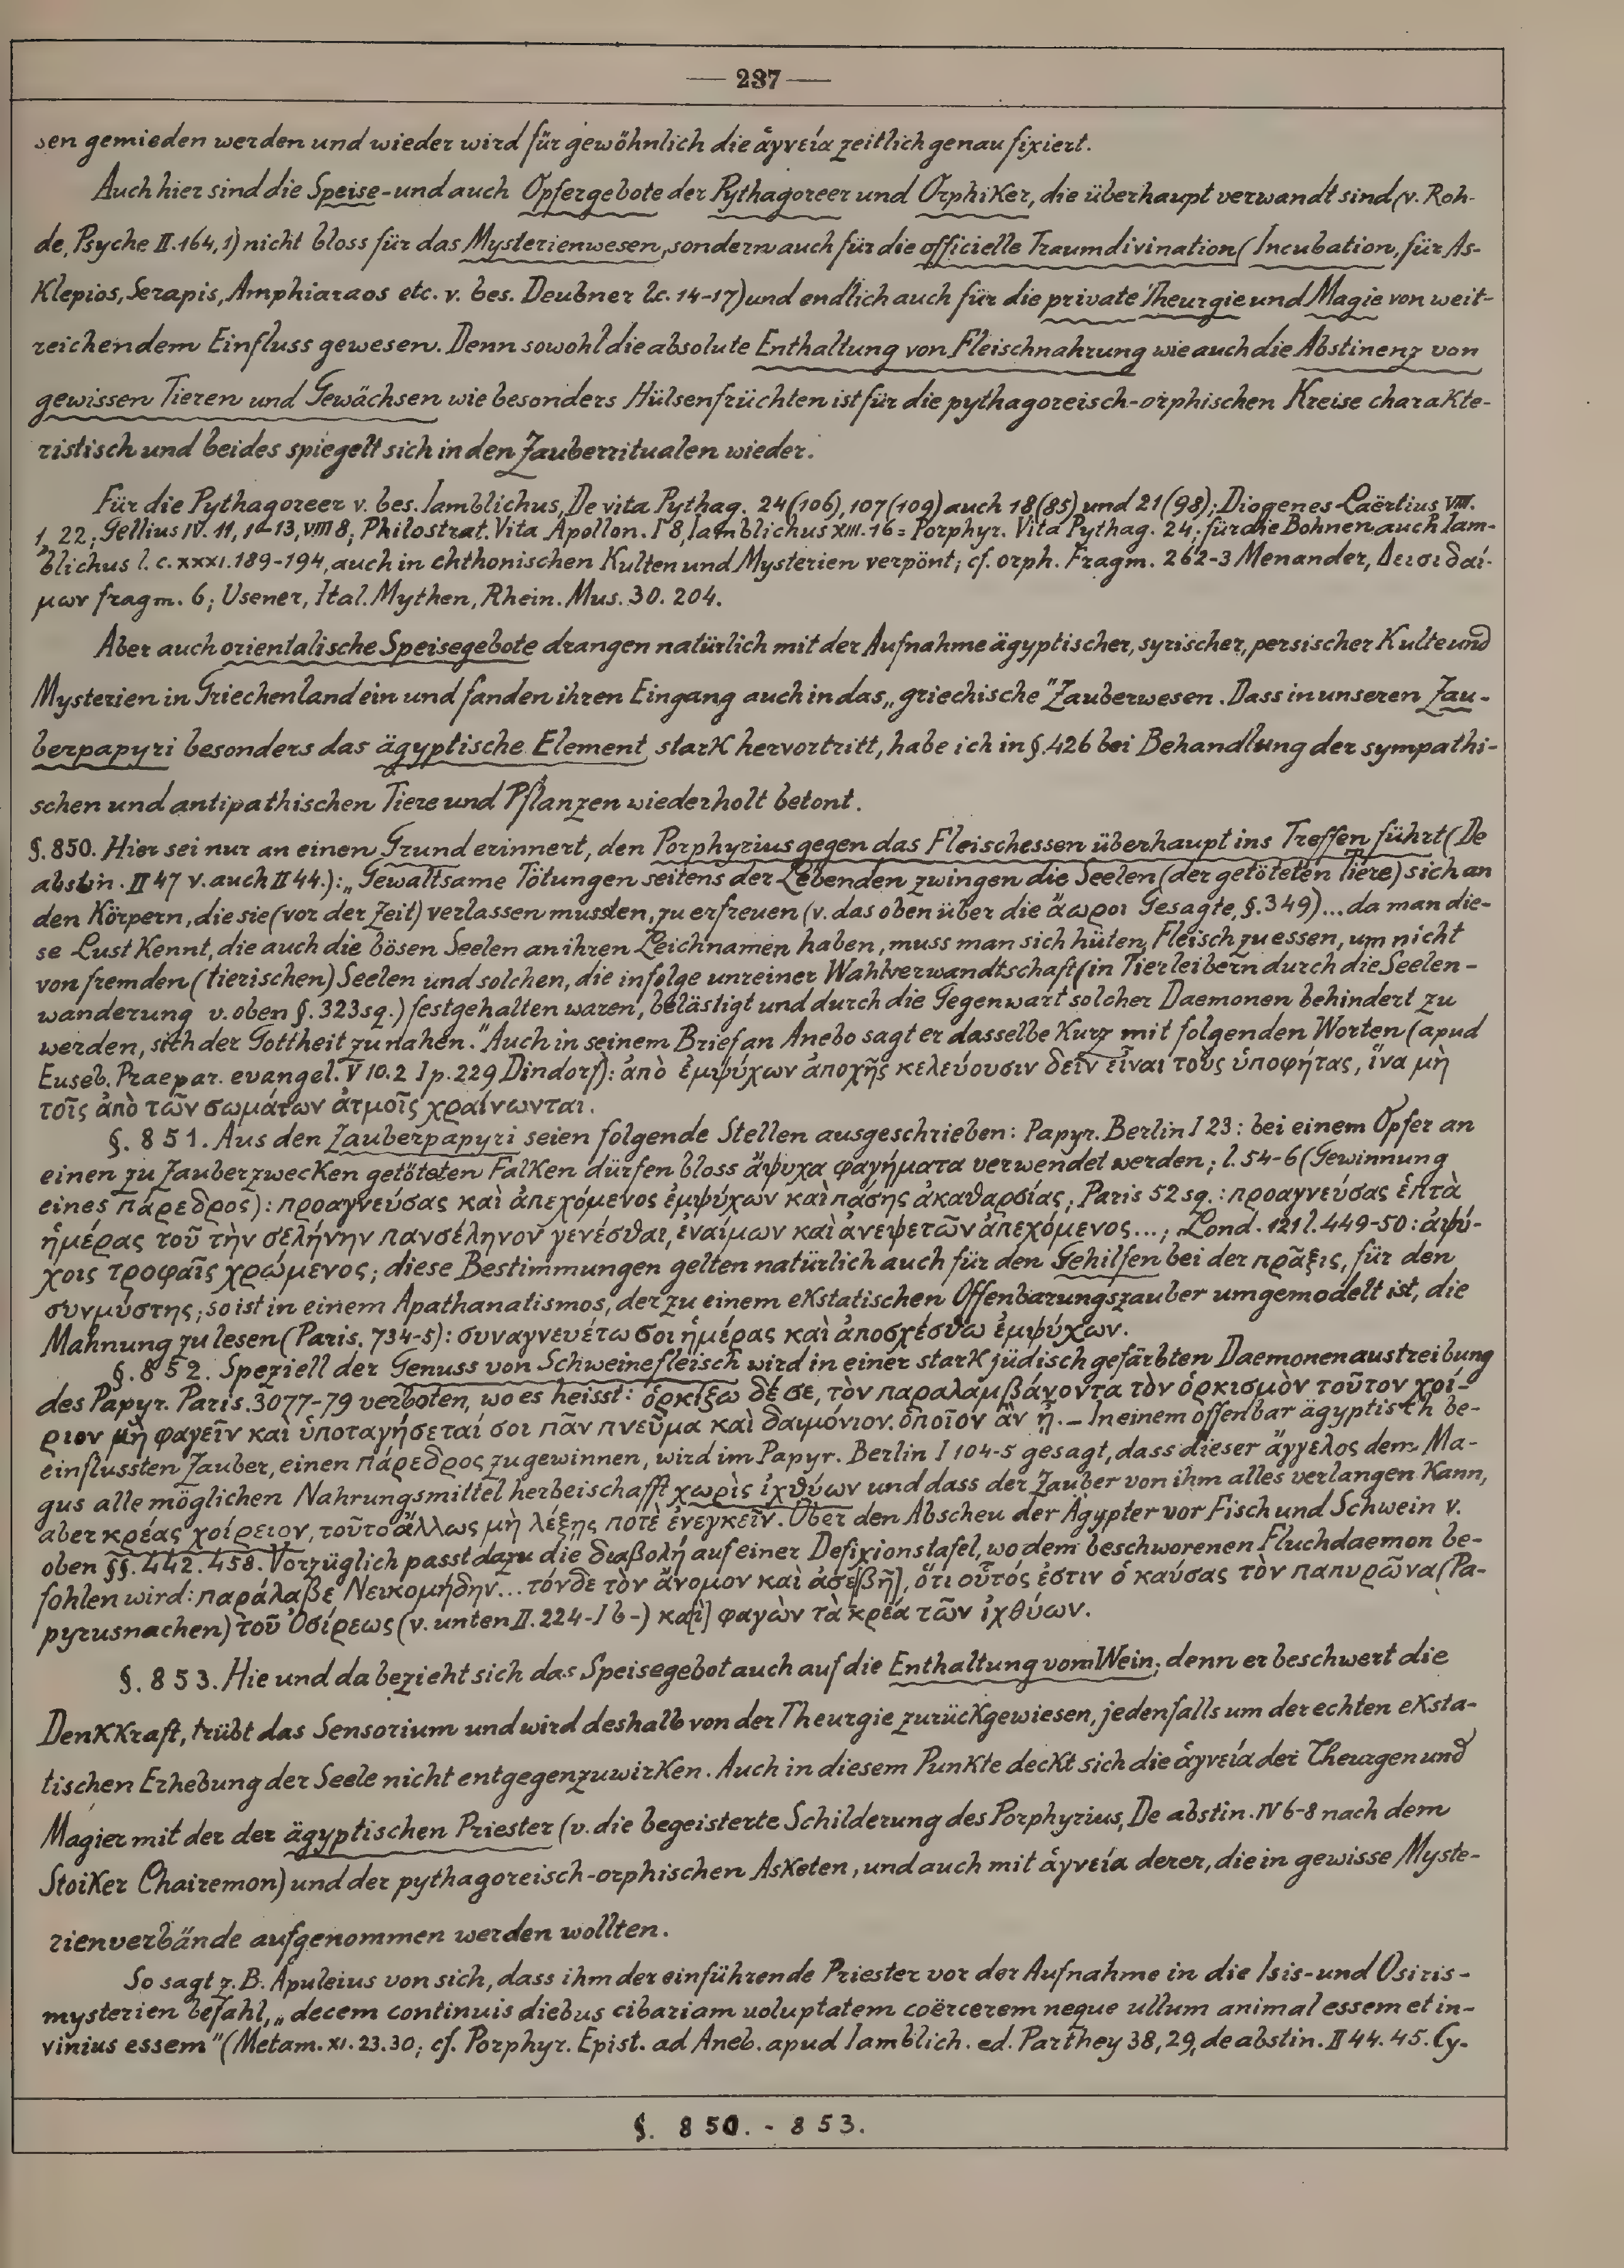 — 237 —
sen gemieden werden und wieder wird für gewöhnlich die ἁγνεία zeitlich genau fixiert.
Auch hier sind die Speise- und auch Opfergebote der Pythagoreer und Orphiker, die überhaupt verwandt sind (v. Roh-
de, Psyche II. 164, 1) nicht bloss für das Mysterienwesen, sondern auch für die officielle Traumdivination (Incubation, für As-
klepios, Serapis, Amphiaraos etc. v. bes. Deubner l.c. 14-17) und endlich auch für die private Theurgie und Magie von weit-
reichendem Einfluss gewesen. Denn sowohl die absolute Enthaltung von Fleischnahrung wie auch die Abstinenz von
gewissen Tieren und Gewächsen wie besonders Hülsenfrüchten ist für die pythagoreisch-orphischen Kreise charakte-
ristisch und beides spiegelt sich in den Zauberritualen wieder.
Für die Pythagoreer v. bes. Iamblichus, De vita Pythag. 24 (106), 107 (109) auch 18 (85) und 21 (98); Diogenes Laërtius VIII.
1, 22; Gellius IV. 11, 1-13, VIII 8; Philostrat. Vita Apollon. I 8, Iamblichus XIII. 16 = Porphyr. Vita Pythag. 24; für die Bohnen auch Iam-
blichus l. c. XXXI. 189-194, auch in chthonischen Kulten und Mysterien verpönt; cf. orph. Fragm. 262-3 Menander, Δεισιδαί-
μων fragm. 6; Usener, Ital. Mythen, Rhein. Mus. 30. 204.
Aber auch orientalische Speisegebote drangen natürlich mit der Aufnahme ägyptischer, syrischer, persischer Kulte und
Mysterien in Griechenland ein und fanden ihren Eingang auch in das „griechische" Zauberwesen. Dass in unseren Zau-
berpapyri besonders das ägyptische Element stark hervortritt, habe ich in §. 426 bei Behandlung der sympathi-
schen und antipathischen Tiere und Pflanzen wiederholt betont.
§. 850. Hier sei nur an einen Grund erinnert, den Porphyrius gegen das Fleischessen überhaupt ins Treffen führt (De
abstin. II 47 v. auch II 44.): „Gewaltsame Tötungen seitens der Lebenden zwingen die Seelen (der getöteten Tiere) sich an
den Körpern, die sie (vor der Zeit) verlassen mussten, zu erfreuen (v. das oben über die ἄωροι Gesagte, §. 349) ... da man die-
se Lust kennt, die auch die bösen Seelen an ihren Leichnamen haben, muss man sich hüten, Fleisch zu essen, um nicht
von fremden (tierischen) Seelen und solchen, die infolge unreiner Wahlverwandtschaft (in Tierleibern durch die Seelen-
wanderung v. oben §. 323 sq.) festgehalten waren, belästigt und durch die Gegenwart solcher Daemonen behindert zu
werden, sich der Gottheit zu nahen." Auch in seinem Brief an Anebo sagt er dasselbe kurz mit folgenden Worten (apud
Euseb. Praepar. evangel. V 10. 2 I p. 229 Dindorf): ἀπὸ ἐμψύχων ἀποχῆς κελεύουσιν δεῖν εἶναι τοὺς ὑποφήτας, ἵνα μὴ
τοῖς ἀπὸ τῶν σωμάτων ἀτμοῖς χραίνωνται.
§. 851. Aus den Zauberpapyri seien folgende Stellen ausgeschrieben: Papyr. Berlin I 23: bei einem Opfer an
einen zu Zauberzwecken getöteten Falken dürfen bloss ἄψυχα φαγήματα verwendet werden; l. 54-6 (Gewinnung
eines πάρεδρος): προαγνεύσας καὶ ἀπεχόμενος ἐμψύχων καὶ πάσης ἀκαθαρσίας; Paris 52 sq.: προαγνεύσας ἑπτὰ
ἡμέρας τοῦ τὴν σελήνην πανσέληνον γενέσθαι, ἐναίμων καὶ ἀνεψετῶν ἀπεχόμενος...; Lond. 121 l. 449-50: ἀψύ-
χοις τροφαῖς χρώμενος; diese Bestimmungen gelten natürlich auch für den Gehilfen bei der πρᾶξις, für den
συνμύστης; so ist in einem Apathanatismos, der zu einem ekstatischen Offenbarungszauber umgemodelt ist, die
Mahnung zu lesen (Paris. 734-5): συναγνευέτω σοι ἡμέρας καὶ ἀποσχέσθω ἐμψύχων.
§. 852. Speziell der Genuss von Schweinefleisch wird in einer stark jüdisch gefärbten Daemonenaustreibung
des Papyr. Paris. 3077-79 verboten, wo es heisst: ὁρκίζω δέ σε, τὸν παραλαμβάνοντα τὸν ὁρκισμὸν τοῦτον χοί-
ριον μὴ φαγεῖν καὶ ὑποταγήσεταί σοι πᾶν πνεῦμα καὶ δαιμόνιον. ὁποῖον ἂν ᾖ. — In einem offenbar ägyptisch be-
einflussten Zauber, einen πάρεδρος zu gewinnen, wird im Papyr. Berlin I 104-5 gesagt, dass dieser ἄγγελος dem Ma-
gus alle möglichen Nahrungsmittel herbeischafft χωρὶς ἰχθύων und dass der Zauber von ihm alles verlangen kann,
aber κρέας χοίρειον, τοῦτο ἄλλως μὴ λέξῃς ποτὲ ἐνεγκεῖν. Über den Abscheu der Ägypter vor Fisch und Schwein v.
oben §§. 442. 458. Vorzüglich passt dazu die διαβολή auf einer Defixionstafel, wo dem beschworenen Fluchdaemon be-
fohlen wird: παράλαβε Νεικομήδην... τόνδε τὸν ἄνομον καὶ ἀσε[βῆ], ὅτι οὗτός ἐστιν ὁ καύσας τὸν παπυρῶνα (Pa-
pyrusnachen) τοῦ Ὀσίρεως (v. unten II. 224-I b-) κα[ὶ] φαγὼν τὰ κρέα τῶν ἰχθύων.
§. 853. Hie und da bezieht sich das Speisegebot auch auf die Enthaltung vom Wein; denn er beschwert die
Denkkraft, trübt das Sensorium und wird deshalb von der Theurgie zurückgewiesen, jedenfalls um der echten eksta-
tischen Erhebung der Seele nicht entgegenzuwirken. Auch in diesem Punkte deckt sich die ἁγνεία der Theurgen und
Magier mit der der ägyptischen Priester (v. die begeisterte Schilderung des Porphyrius, De abstin. IV 6-8 nach dem
Stoiker Chairemon) und der pythagoreisch-orphischen Asketen, und auch mit ἁγνεία derer, die in gewisse Myste-
rienverbände aufgenommen werden wollten.
So sagt z. B. Apuleius von sich, dass ihm der einführende Priester vor der Aufnahme in die Isis- und Osiris-
mysterien befahl, „decem continuis diebus cibariam uoluptatem coërcerem neque ullum animal essem et in-
vinius essem" (Metam. XI. 23. 30; cf. Porphyr. Epist. ad Aneb. apud Iamblich. ed. Parthey 38, 29, de abstin. II 44. 45. Cy-
§. 850. - 853.